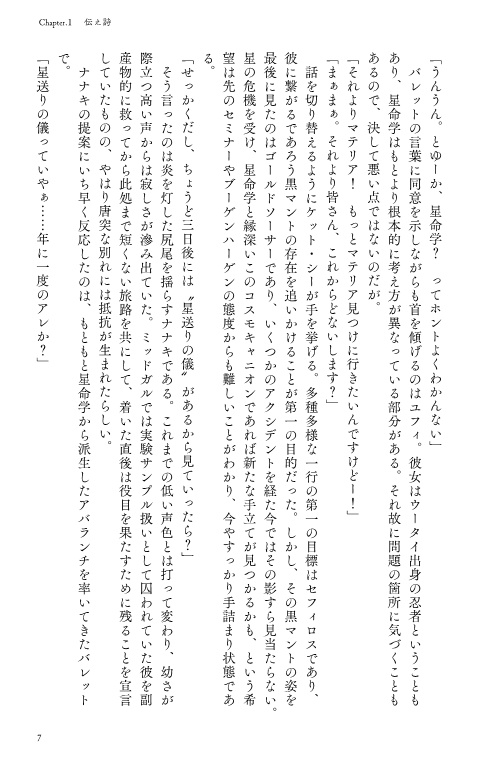 Chapter.1　伝え詩
「うんうん。とゆーか、星命学？　ってホントよくわかんない」
　バレットの言葉に同意を示しながらも首を傾げるのはユフィ。彼女はウータイ出身の忍者ということも
あり、星命学はもとより根本的に考え方が異なっている部分がある。それ故に問題の箇所に気づくことも
あるので、決して悪い点ではないのだが。
「それよりマテリア！　もっとマテリア見つけに行きたいんですけどー！」
「まぁまぁ。それより皆さん、これからどないします？」
　話を切り替えるようにケット・シーが手を挙げる。多種多様な一行の第一の目標はセフィロスであり、
彼に繋がるであろう黒マントの存在を追いかけることが第一の目的だった。しかし、その黒マントの姿を
最後に見たのはゴールドソーサーであり、いくつかのアクシデントを経た今ではその影すら見当たらない。
星の危機を受け、星命学と縁深いこのコスモキャニオンであれば新たな手立てが見つかるかも、という希
望は先のセミナーやブーゲンハーゲンの態度からも難しいことがわかり、今やすっかり手詰まり状態であ
る。
「せっかくだし、ちょうど三日後には〝星送りの儀〟があるから見ていったら？」
　そう言ったのは炎を灯した尻尾を揺らすナナキである。これまでの低い声色とは打って変わり、幼さが
際立つ高い声からは寂しさが滲み出ていた。ミッドガルでは実験サンプル扱いとして囚われていた彼を副
産物的に救ってから此処まで短くない旅路を共にして、着いた直後は役目を果たすために残ることを宣言
していたものの、やはり唐突な別れには抵抗が生まれたらしい。
　ナナキの提案にいち早く反応したのは、もともと星命学から派生したアバランチを率いてきたバレット
で。
「星送りの儀っていやぁ……年に一度のアレか？」
7